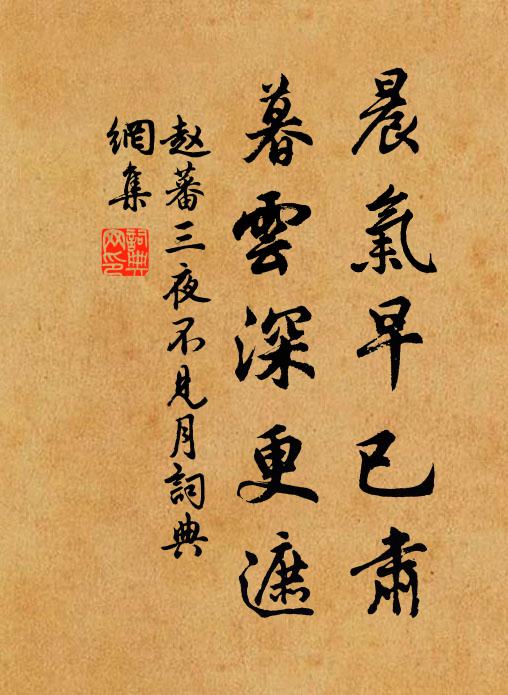 晨氣早已肅
暮雲深更遮
赵蕃三夜不見月詞典
網集
詞典
网印